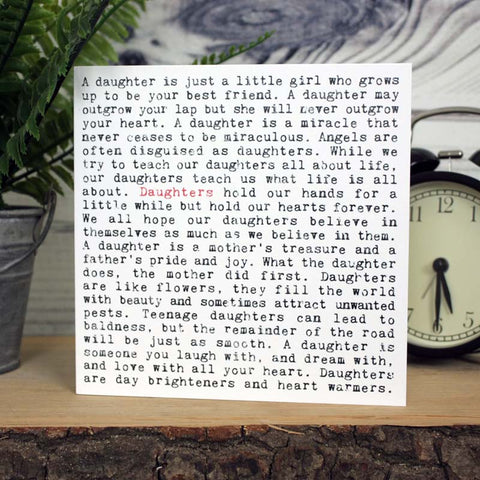 A daughter is just a little girl who grows
up to be your best friend. A daughter may
outgrow your lap but she will never outgrow
your heart. A daughter is a miracle that
never ceases to be miraculous. Angels are
often disguised as daughters. While we
try to teach our daughters all about life,
our daughters teach us what life is all
about. Daughters hold our hands for a
little while but hold our hearts forever.
We all hope our daughters believe in
themselves as much as we believe in them.
A daughter is a mother's treasure and a
father's pride and joy. What the daughter
does, the mother did first. Daughters
are like flowers, they fill the world
with beauty and sometimes attract unwanted
pests. Teenage daughters can lead to
baldness, but the remainder of the road
will be just as smooth. A daughter is
someone you laugh with, and dream with,
and love with all your heart. Daughters
are day brighteners and heart warmers.
11 12
10
9
8
7 6 5